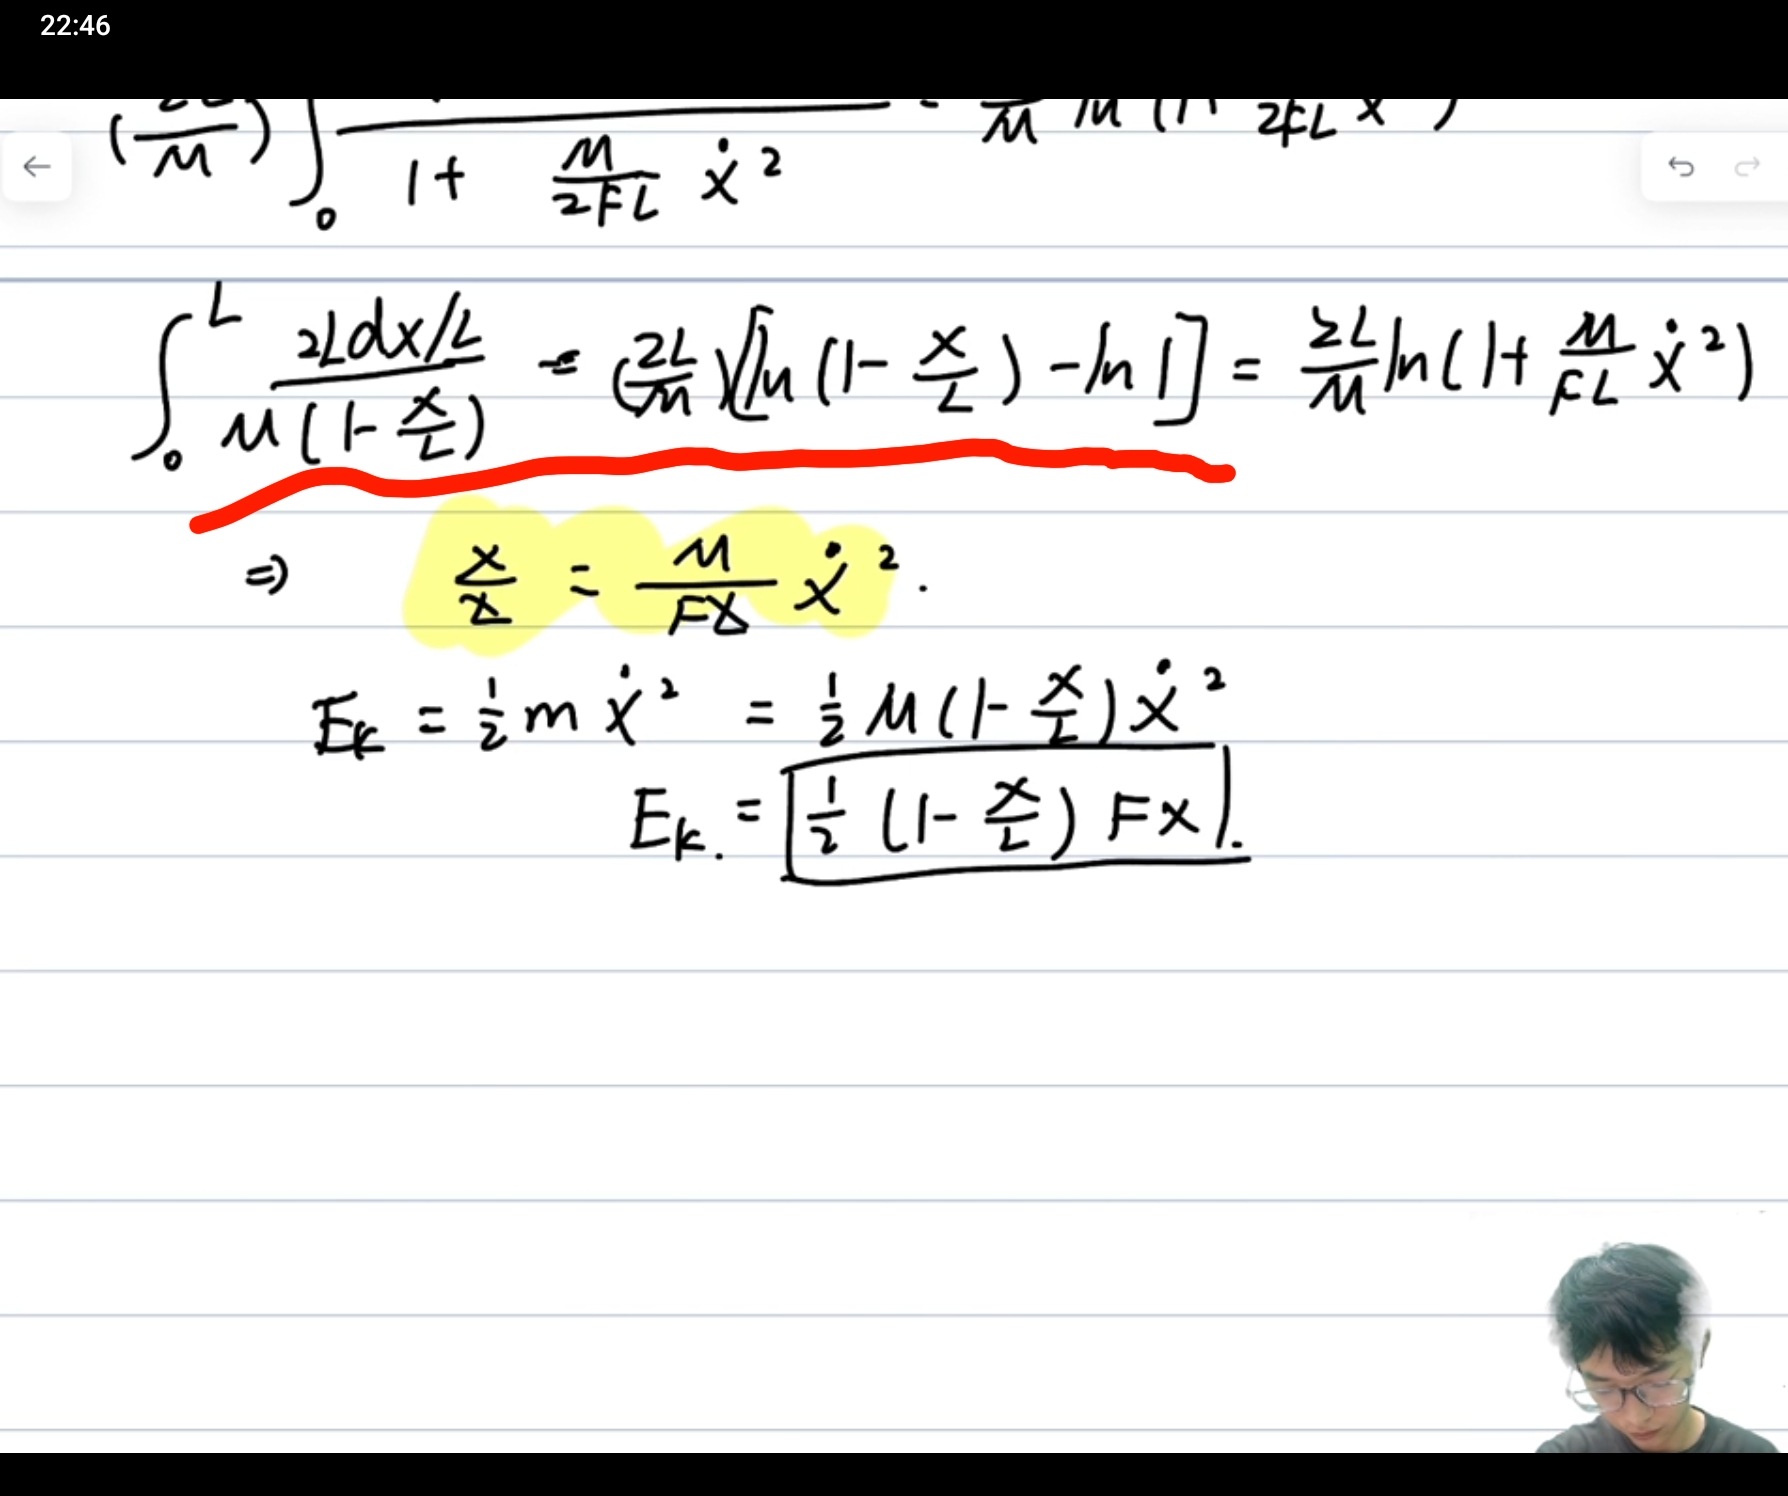 22:46
( M ) ∫₀ 1+ M/2FL ẋ² = /M ln (1+ /2FL ẋ²)
∫₀ᴸ 2Ldx/L / M(1-x/L) = (2L/M)[ln(1-x/L)-ln1] = 2L/M ln(1+ M/FL ẋ²)
⇒ x/L = M/FL ẋ².
Eₖ = ½mẋ² = ½M(1-x/L)ẋ²
Eₖ. = ½(1-x/L)Fx.